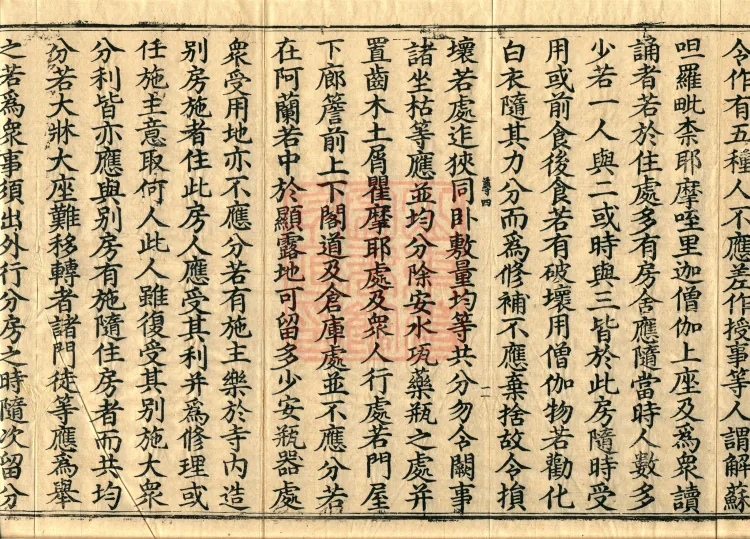 令作有五種人不應差作授事等人謂解蘇
呾羅毗柰耶摩咥里迦僧伽上座及爲衆讀
誦者若於住處多有房舍應隨當時人數多
少若一人與二或時與三皆於此房隨時受
用或前食後食若有破壞用僧伽物若勸化
白衣隨其力分而爲修補不應棄捨故令損
二
壞若處迮狹同卧敷量均等共分勿令闕事
諸坐枯等應並均分除安水瓨藥瓶之處并
置齒木土屑瞿摩耶處及衆人行處若門屋
下廊簷前上下閣道及倉庫處並不應分若
在阿蘭若中於顯露地可留多少安瓶器處
衆受用地亦不應分若有施主樂於寺内造
別房施者住此房人應受其利并爲修理或
任施主意取何人此人雖復受其別施大衆
分利皆亦應與別房有施隨住房者而共均
分若大牀大座難移轉者諸門徒等應爲舉
之若爲衆事須出外行分房之時隨次留分